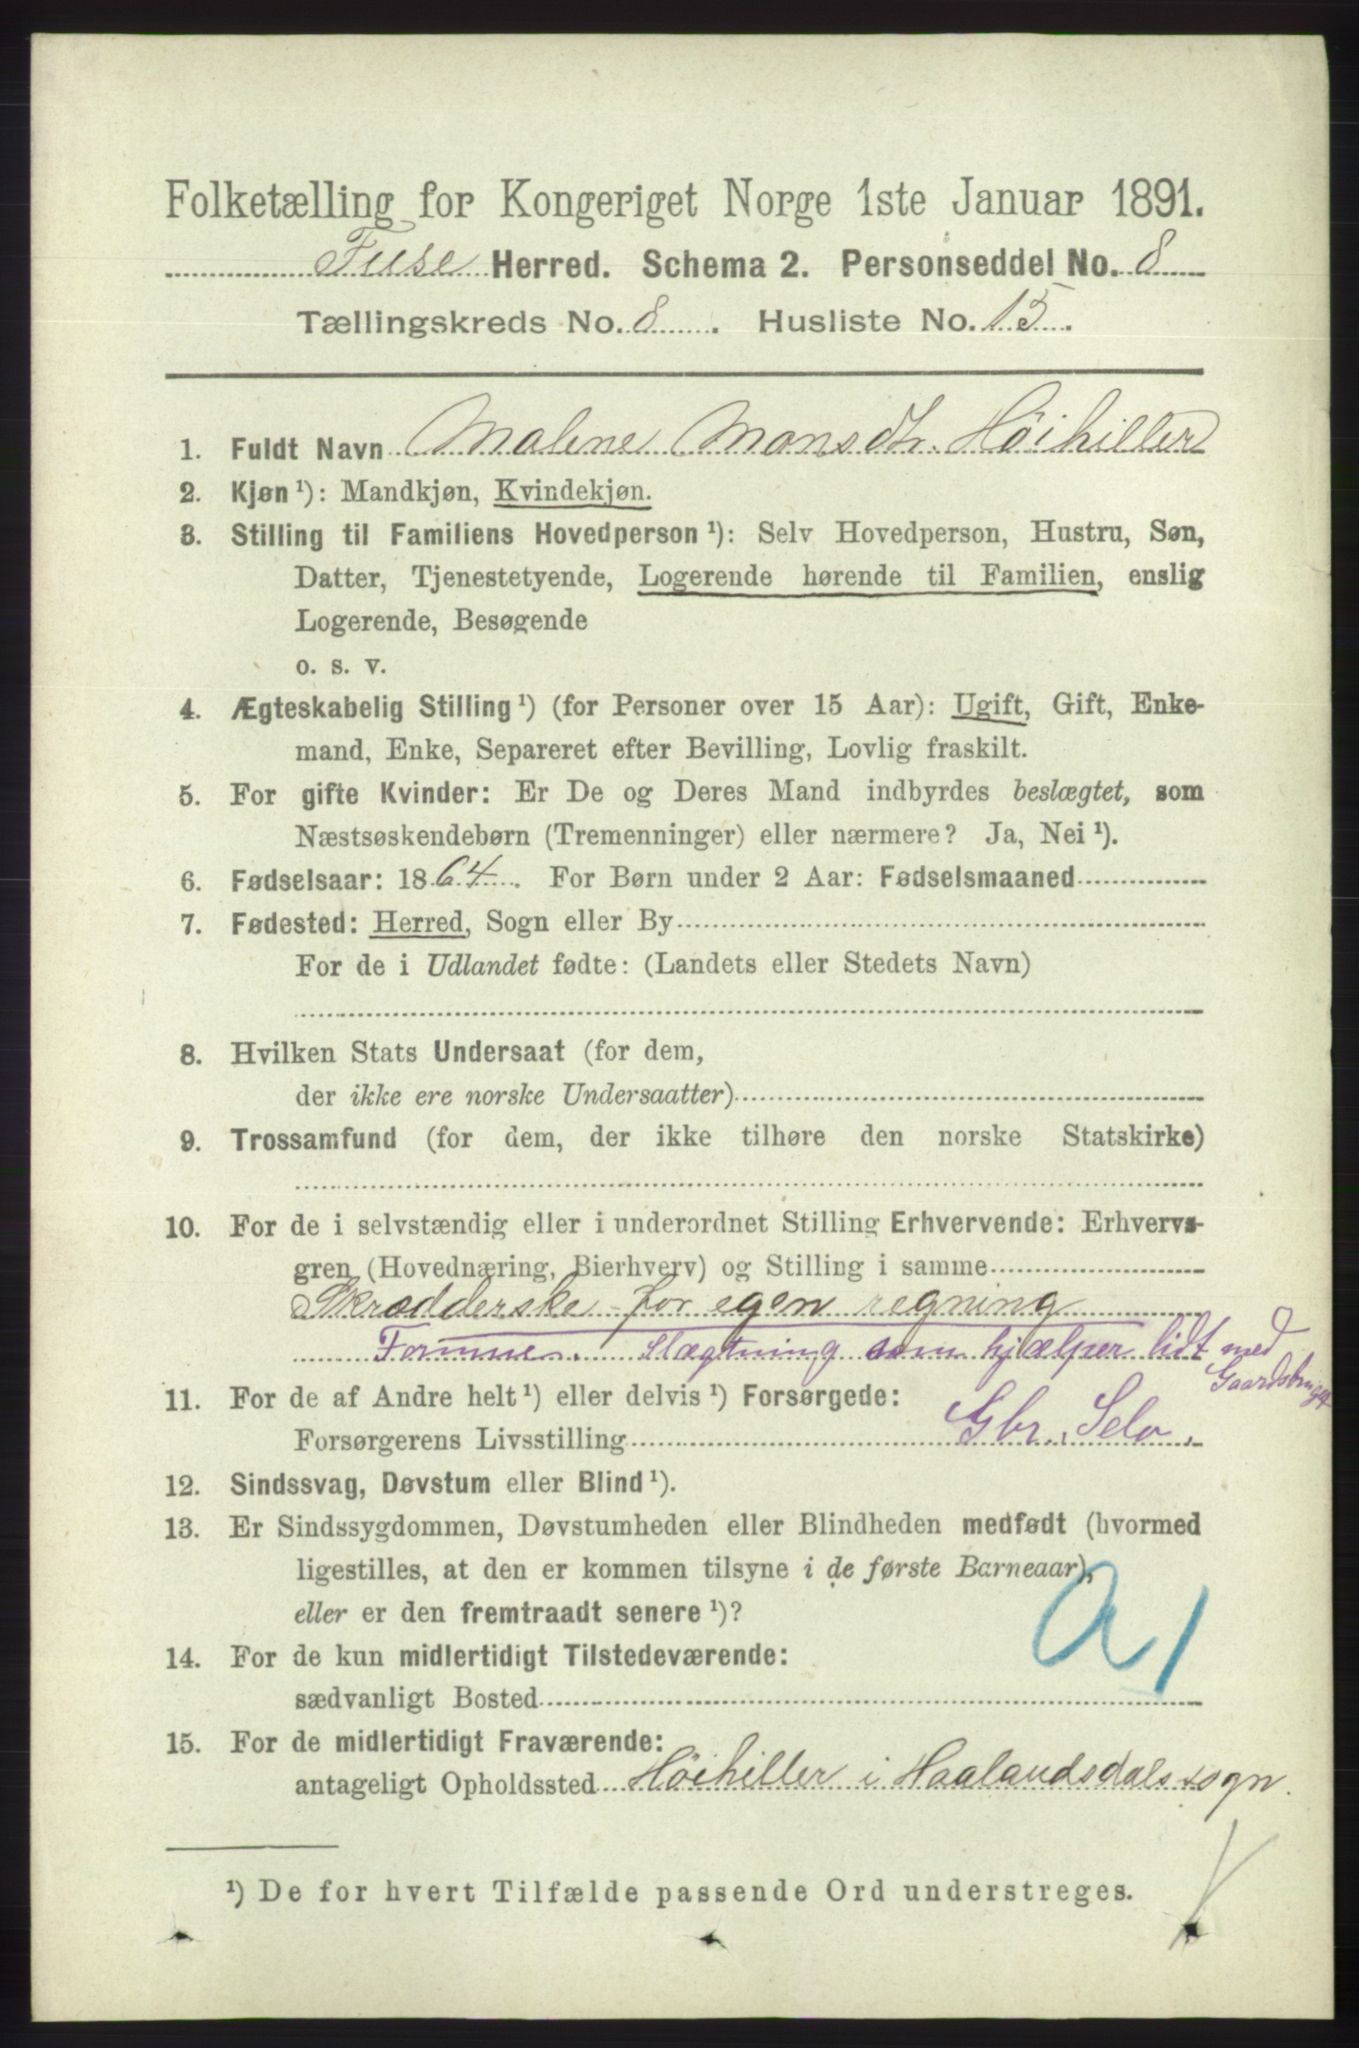 Folketælling for Kongeriget Norge 1ste Januar 1891.
Fuse Herred. Schema 2. Personseddel No. 8
Tællingskreds No. 8. Husliste No. 15.
1. Fuldt Navn Malene Monsdtr. Höihiller
2. Kjøn ¹): Mandkjøn, Kvindekjøn.
3. Stilling til Familiens Hovedperson ¹): Selv Hovedperson, Hustru, Søn,
Datter, Tjenestetyende, Logerende hørende til Familien, enslig
Logerende, Besøgende
o. s. v.
4. Ægteskabelig Stilling ¹) (for Personer over 15 Aar): Ugift, Gift, Enke-
mand, Enke, Separeret efter Bevilling, Lovlig fraskilt.
5. For gifte Kvinder: Er De og Deres Mand indbyrdes beslægtet, som
Næstsøskendebørn (Tremenninger) eller nærmere? Ja, Nei ¹).
6. Fødselsaar: 1864. For Børn under 2 Aar: Fødselsmaaned
7. Fødested: Herred, Sogn eller By
For de i Udlandet fødte: (Landets eller Stedets Navn)
8. Hvilken Stats Undersaat (for dem,
der ikke ere norske Undersaatter)
9. Trossamfund (for dem, der ikke tilhøre den norske Statskirke)
10. For de i selvstændig eller i underordnet Stilling Erhvervende: Erhvervs-
gren (Hovednæring, Bierhverv) og Stilling i samme
Skrædderske for egen regning
Formue. Slægtning som hjælper lidt med
Gaardsbruget
11. For de af Andre helt ¹) eller delvis ¹) Forsørgede:
Forsørgerens Livsstilling Gbr. Selv.
12. Sindssvag, Døvstum eller Blind ¹).
13. Er Sindssygdommen, Døvstumheden eller Blindheden medfødt (hvormed
ligestilles, at den er kommen tilsyne i de første Barneaar),
eller er den fremtraadt senere ¹)?
a1
14. For de kun midlertidigt Tilstedeværende:
sædvanligt Bosted
15. For de midlertidigt Fraværende:
antageligt Opholdssted Höihiller i Haalandsdals sogn.
¹) De for hvert Tilfælde passende Ord understreges.